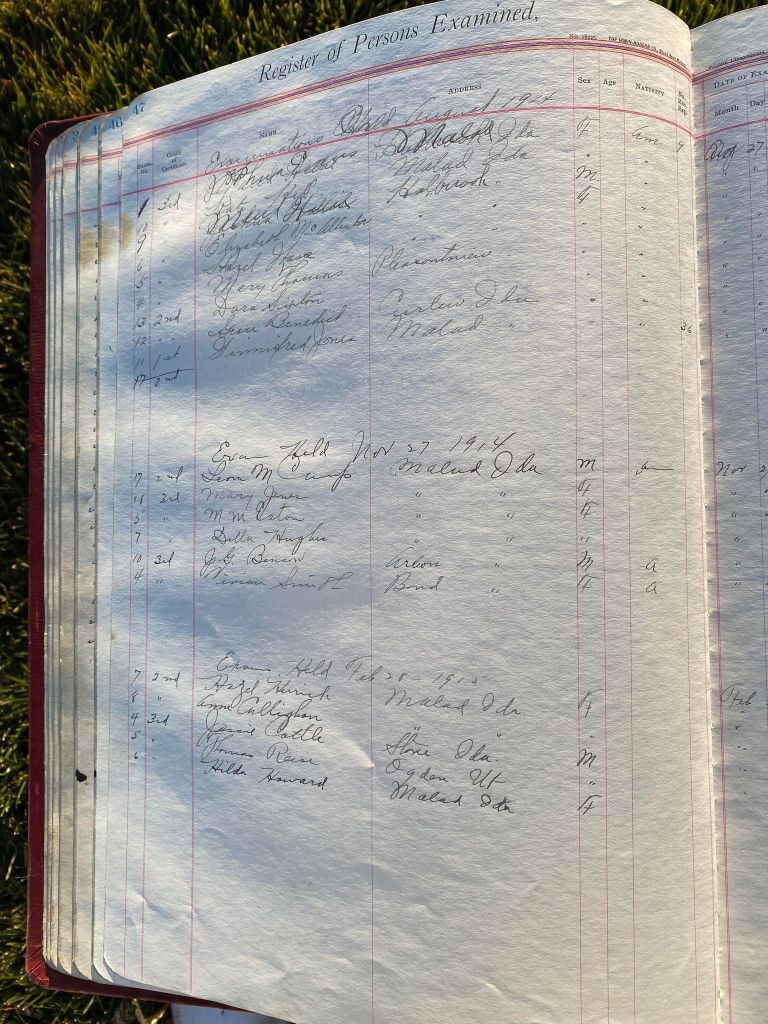 Register of Persons Examined,
47
46
NAME ADDRESS Sex Age NATIVITY DATE OF EXA
Month Day
Examinations Held August 1914
1 3rd F Am. 9 Aug 27
Malad Ida "
10 " Malad Ida M "
9 " Holbrook " F "
6 " Elizabeth McAllister " " " "
5 " Hazel " " " "
4 " Mary Thomas Pleasantview " " "
13 2nd Dora " "
12 " " Benedict Curlew Ida " "
11 1st Winnifred Jones Malad " " " 36
17 2nd
Exam Held Nov 27 1914
17 2nd Leon M Camp Malad Ida M am Nov 2
18 3rd Mary Jones " " F "
5 " M M Eaton " " F "
7 " Della Hughes " " " "
10 3rd J. G. Benson Arbon " M a "
4 " Smith Bond " F a "
Exams Held Feb 28 - 1915
7 2nd Hazel Malad Ida F Feb
8 " Anna Callighan
4 3rd Jessie Cottle " "
5 " Thomas Reese Stone Ida. M
6 " Hilda Howard Ogden Ut "
Malad Ida F